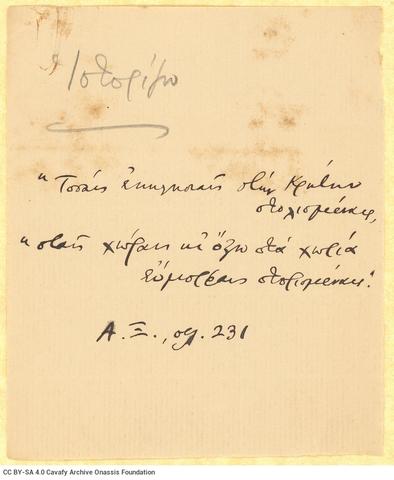 Ἱστορίζω
"Τοσαὶς ἐκκλησιαὶς στὴν Κρήτην
στολισμέναις,
"σταὶς χώραις κι' ὄξω στὰ χωριὰ
εὔμορφαις στορισμέναις".
Α.Ξ., σελ. 231
CC BY-SA 4.0 Cavafy Archive Onassis Foundation